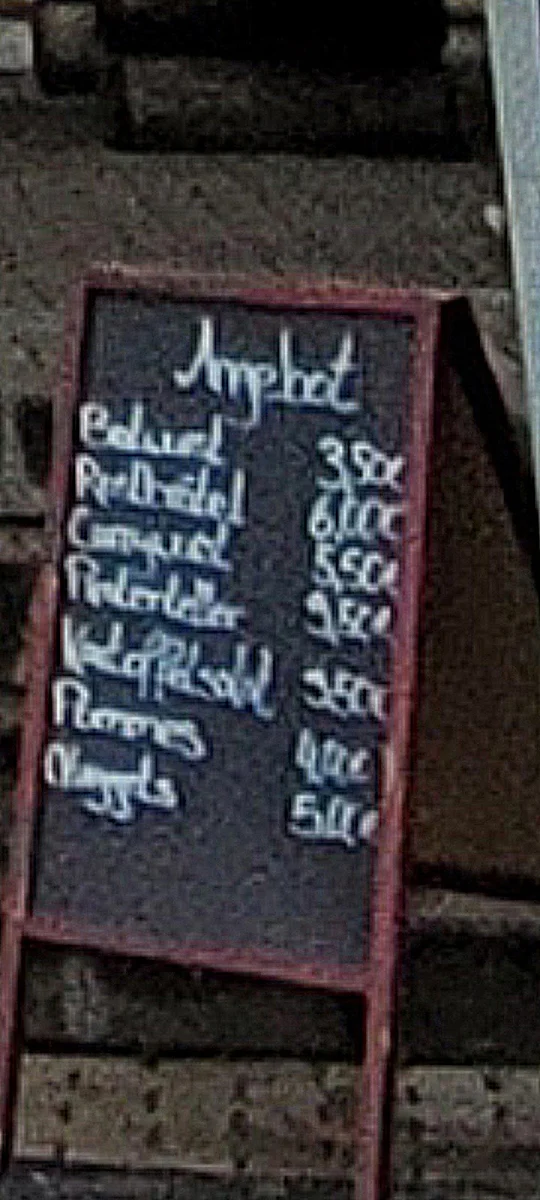 Angebot
Bratwurst 3,50€
6,00€
Currywurst 5,50€
9,50€
Kartoffelsalat 3,50€
Pommes 4,00€
Nuggets 5,00€